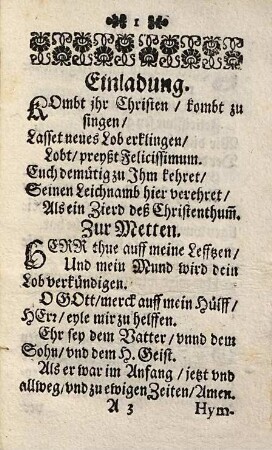 1
Einladung.
KOmbt jhr Christen / kombt zu
singen /
Lasset neues Lob erklingen /
Lobt / preyßt Felicissimum.
Euch demütig zu Jhm kehret /
Seinen Leichnamb hier verehret /
Als ein Zierd deß Christenthum̃.
Zur Metten.
HERR thue auff meine Lefftzen /
Und mein Mund wird dein
Lob verkündigen.
O GOtt / merck auff mein Hülff /
HErr / eyle mir zu helffen.
Ehr sey dem Vatter / vnnd dem
Sohn / vnd dem H. Geist.
Als er war im Anfang / jetzt vnd
allweg / vnd zu ewigen Zeiten / Amen.
A 3 Hym-